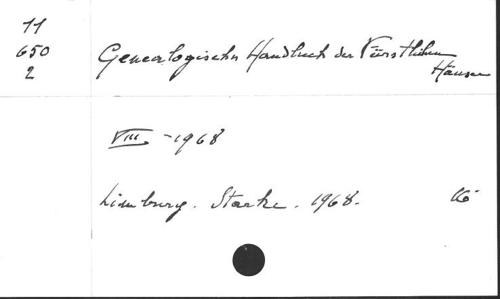 11
650
2
Genealogisches Handbuch der Fürstlichen
Häuser
VIII - 1968
Limburg. Starke. 1968.